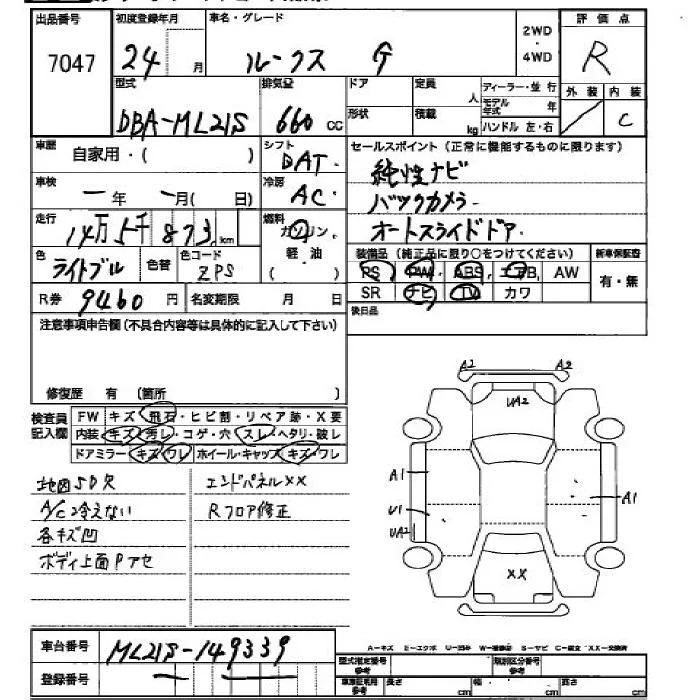 出品番号 初度登録年月 車名・グレード 2WD・4WD 評価点
7047 24 月 ルークス G R
型式 排気量 ドア 定員 人 ディーラー・並行 外装 内装
DBA-ML21S 660 cc 形状 積載 kg モデル年式 年 ハンドル 左・右 C
車歴 自家用・( ) シフト DAT. セールスポイント(正常に機能するものに限ります)
純性ナビ
車検 一年 一月( 日) 冷房 AC. バックカメラ
走行 14万5千873km 燃料 ガソリン オートスライドドア.
軽油
( )
色 ライトブル 色替 色コード ZPS
装備品(純正品に限り○をつけてください) 新車保証書
PS PW ABS エアB AW 有・無
SR ナビ TV カワ
R券 9460円 名変期限 月 日 後日品
注意事項申告欄(不具合内容等は具体的に記入して下さい)
修復歴 有 (箇所 )
検査員記入欄 FW キズ・飛石・ヒビ割・リペア跡・X要
内装 キズ・汚レ・コゲ・穴・スレ・ヘタリ・破レ
ドアミラー キズ・ワレ ホイール・キャップ キズ・ワレ
地図SD欠 エンドパネルXX
A/C冷えない Rフロア修正
各キズ凹
ボディ上面Pアセ
A2 A2
UA2
A1
A1
U1
UA2
XX
A-キズ E-エクボ U-凹み W-補修跡 S-サビ C-腐食 XX-交換済
車台番号 ML21S-149339
登録番号 型式指定番号 参考 類別区分番号 参考
車庫証明用 参考 長さ cm 幅 cm 高さ cm